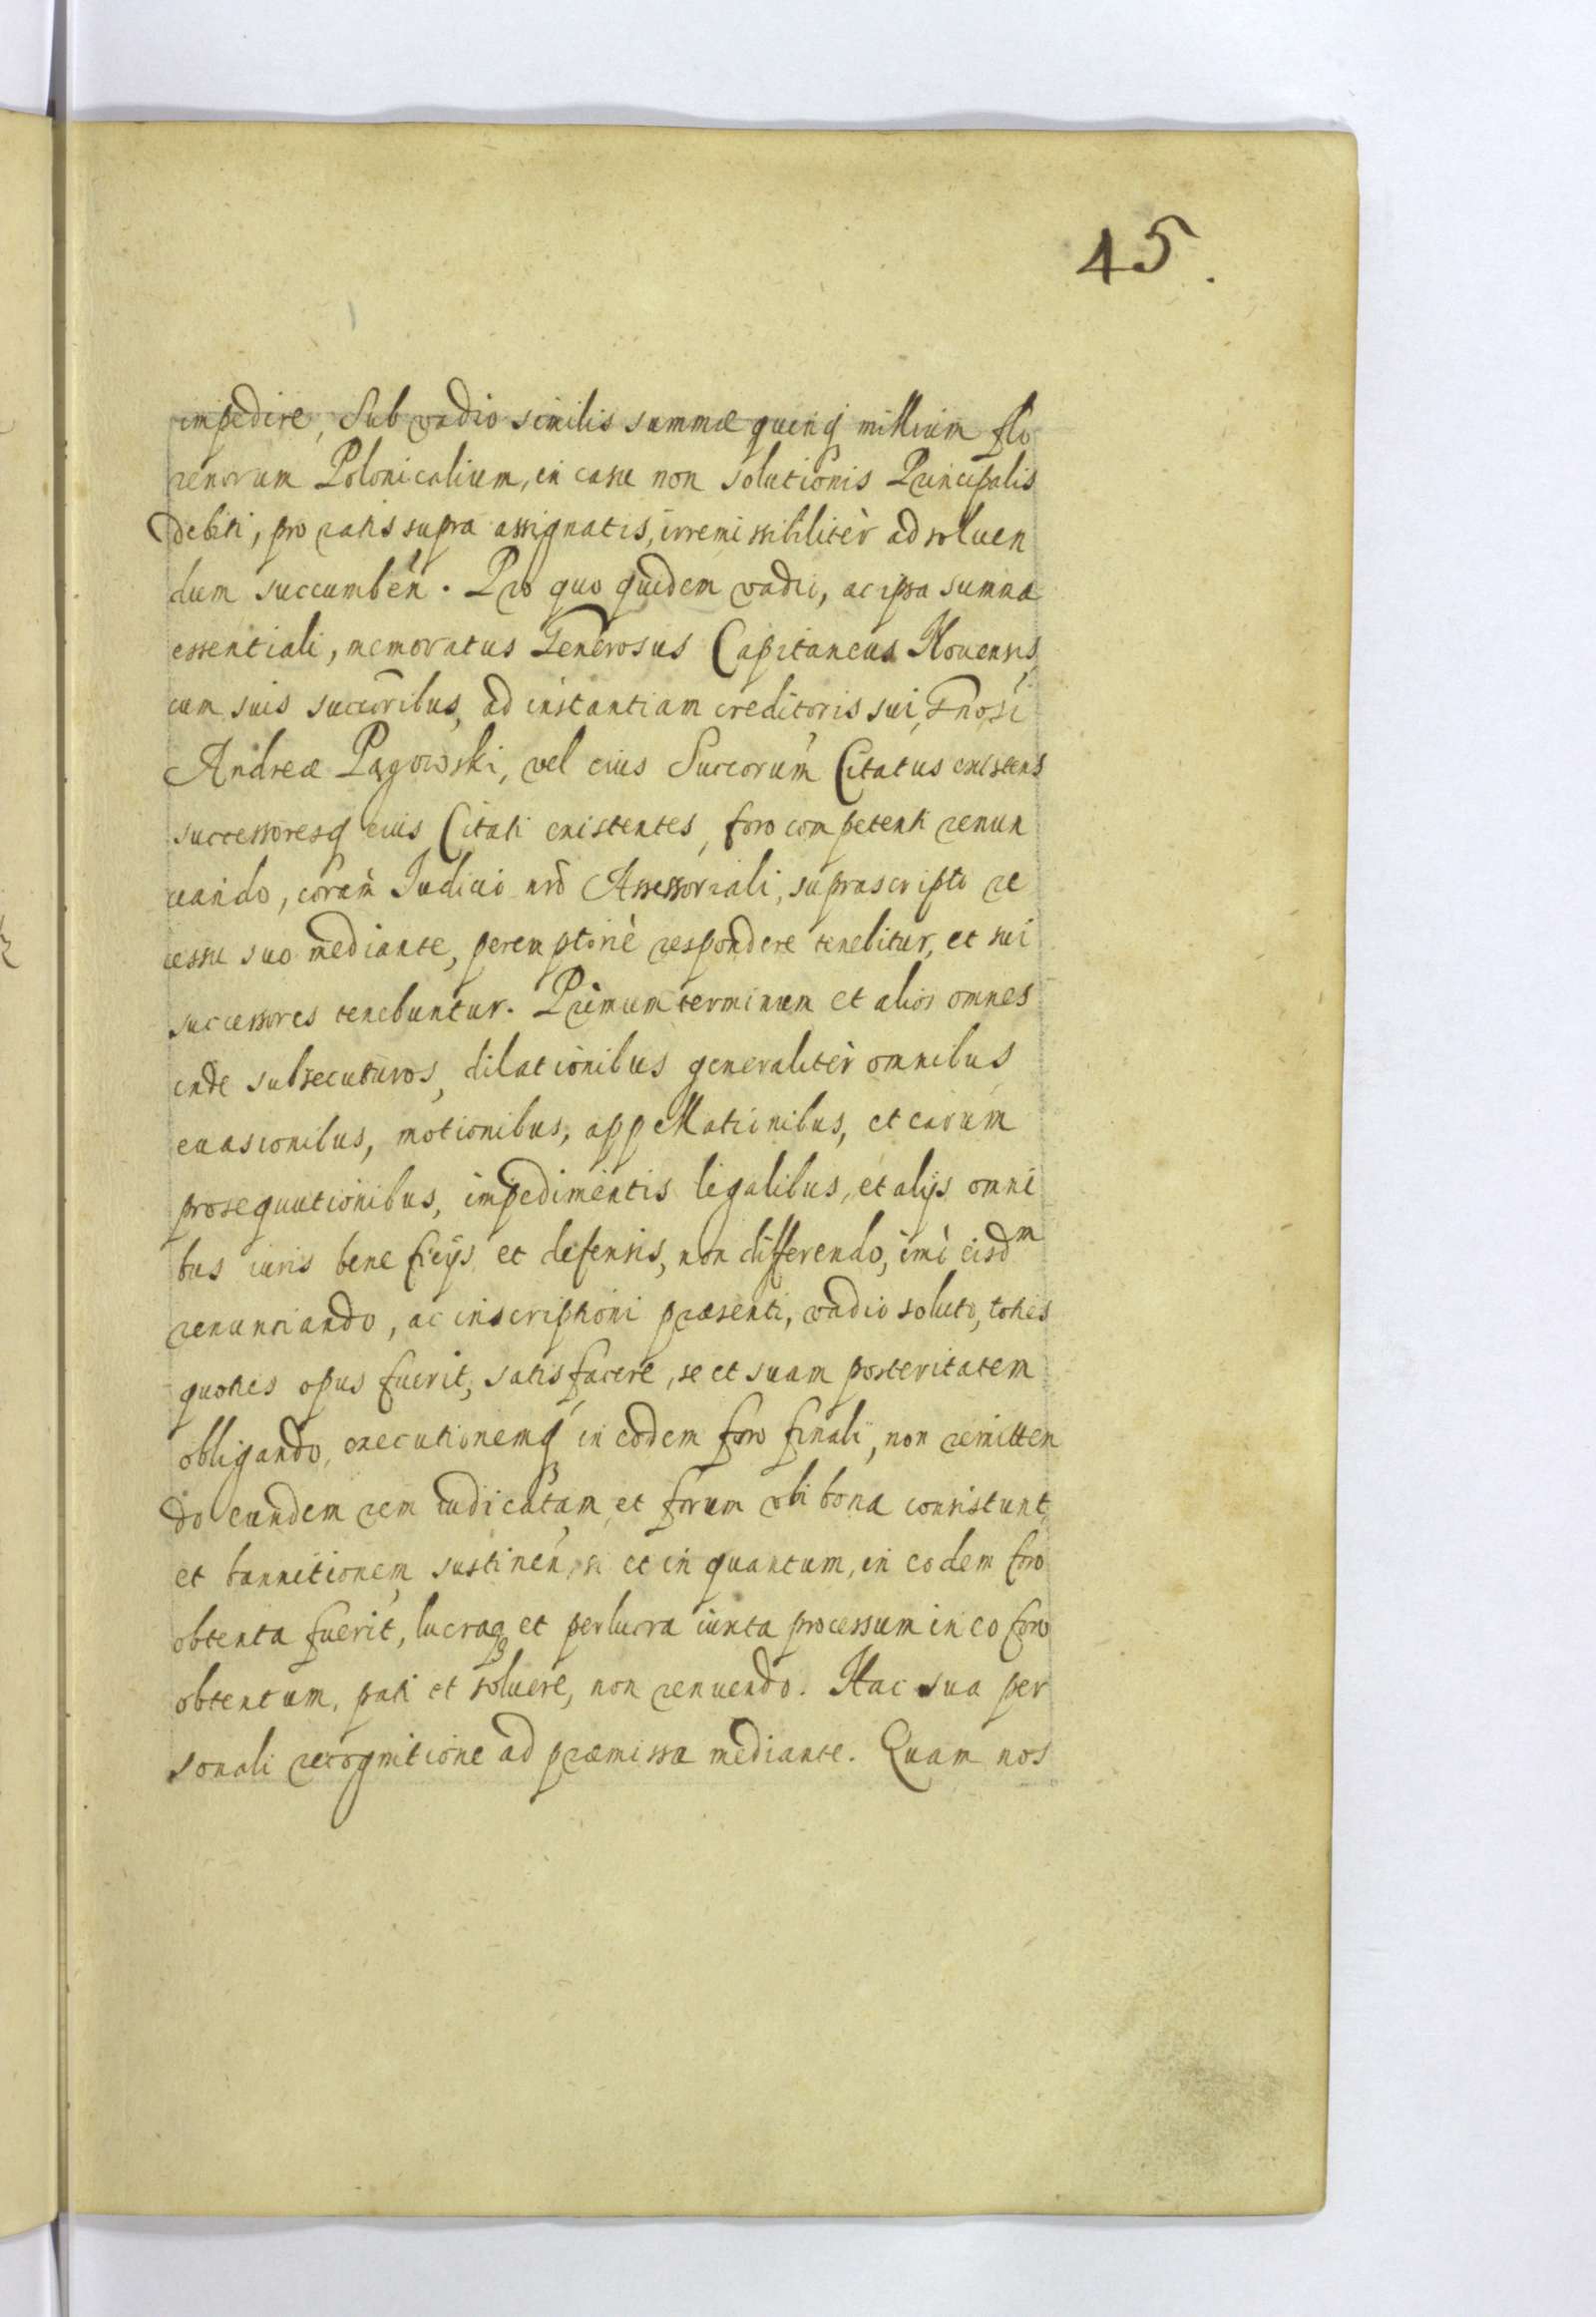 45.
impedire, Sub vadio similis summæ quinq millium flo
renorum Polonicalium, in casu non solutionis Principalis
debiti, pro ratis supra assignatis, irremissibilitèr ad soluen
dum succumbeń. Pro quo quidem vadio, ac ipsa summa
essentiali, memoratus Generosus Capitaneus Kouensis,
cum suis succoribus, ad instantiam creditoris sui, Gnosi
Andreæ Pągowski, vel eius Succorum Citatus existens
successoresq eius Citati existentes, foro competenti renun
ciando, coram Iudicio nrõ Assessoriali, suprascripto re
cessu suo mediante, peremptoriè respondere tenebitur, et sui
successores tenebuntur. Primum terminum et alios omnes
inde subsecuturos, dilationibus generalitèr omnibus
euasionibus, motionibus, appellationibus, et earum
prosequutionibus, impedimentis legalibus, et alijs omni
bus iuris beneficijs et defensis, non differendo, imò eisdm
renunciando, ac inscriptioni præsenti, vadio soluto, toties
quoties opus fuerit, satisfacere, se et suam posteritatem
obligando, executionemq in eodem foro finali, non remitten
do eandem rem iudicatam, et forum vbi bona consistunt,
et bannitionem sustineń, si et in quantum, in eodem foro
obtenta fuerit, lucraq et perlucra iuxta processum in eo foro
obtentum, pati et soluere, non renuendo. Hac sua per
sonali recognitione ad præmissa mediante. Quam nos